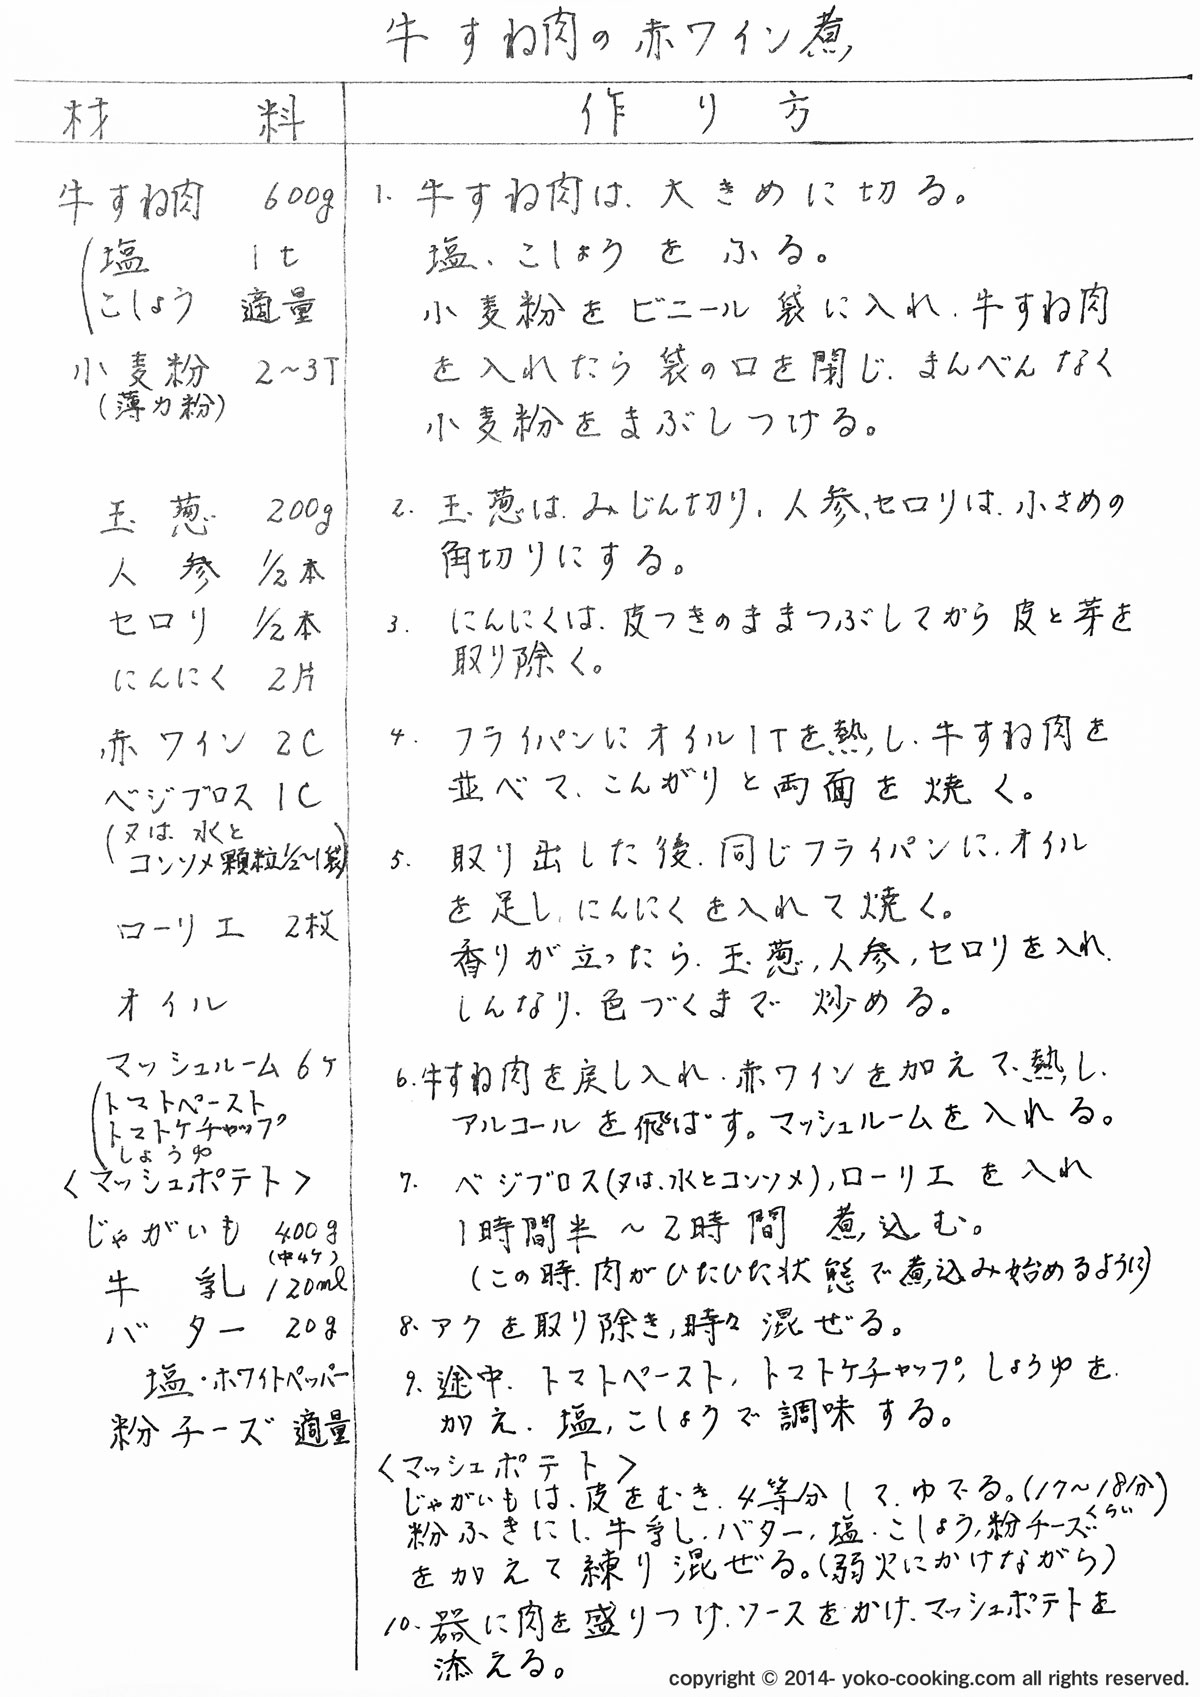 牛すね肉の赤ワイン煮
材料
作り方
牛すね肉 600g
塩 1t
こしょう 適量
小麦粉 2～3T
(薄力粉)
玉葱 200g
人参 1/2本
セロリ 1/2本
にんにく 2片
赤ワイン 2C
ベジブロス 1C
(又は、水と
コンソメ顆粒1/2～1袋)
ローリエ 2枚
オイル
マッシュルーム 6ケ
トマトペースト
トマトケチャップ
しょうゆ
〈マッシュポテト〉
じゃがいも 400g
(中4ケ)
牛乳 120ml
バター 20g
塩・ホワイトペッパー
粉チーズ 適量
1. 牛すね肉は、大きめに切る。
塩、こしょうをふる。
小麦粉をビニール袋に入れ、牛すね肉
を入れたら袋の口を閉じ、まんべんなく
小麦粉をまぶしつける。
2. 玉葱は、みじん切り、人参、セロリは、小さめの
角切りにする。
3. にんにくは、皮つきのままつぶしてから皮と芽を
取り除く。
4. フライパンにオイル1Tを熱し、牛すね肉を
並べて、こんがりと両面を焼く。
5. 取り出した後、同じフライパンに、オイル
を足し、にんにくを入れて焼く。
香りが立ったら、玉葱、人参、セロリを入れ、
しんなり、色づくまで炒める。
6. 牛すね肉を戻し入れ、赤ワインを加えて、熱し、
アルコールを飛ばす。マッシュルームを入れる。
7. ベジブロス(又は、水とコンソメ)、ローリエを入れ
1時間半～2時間 煮込む。
(この時、肉がひたひた状態で煮込み始めるように)
8. アクを取り除き、時々混ぜる。
9. 途中、トマトペースト、トマトケチャップ、しょうゆを
加え、塩、こしょうで調味する。
〈マッシュポテト〉
じゃがいもは、皮をむき、4等分して、ゆでる。(17～18分)
くらい
粉ふきにし、牛乳、バター、塩・こしょう、粉チーズ
を加えて練り混ぜる。(弱火にかけながら)
10. 器に肉を盛りつけ、ソースをかけ、マッシュポテトを
添える。
copyright © 2014- yoko-cooking.com all rights reserved.